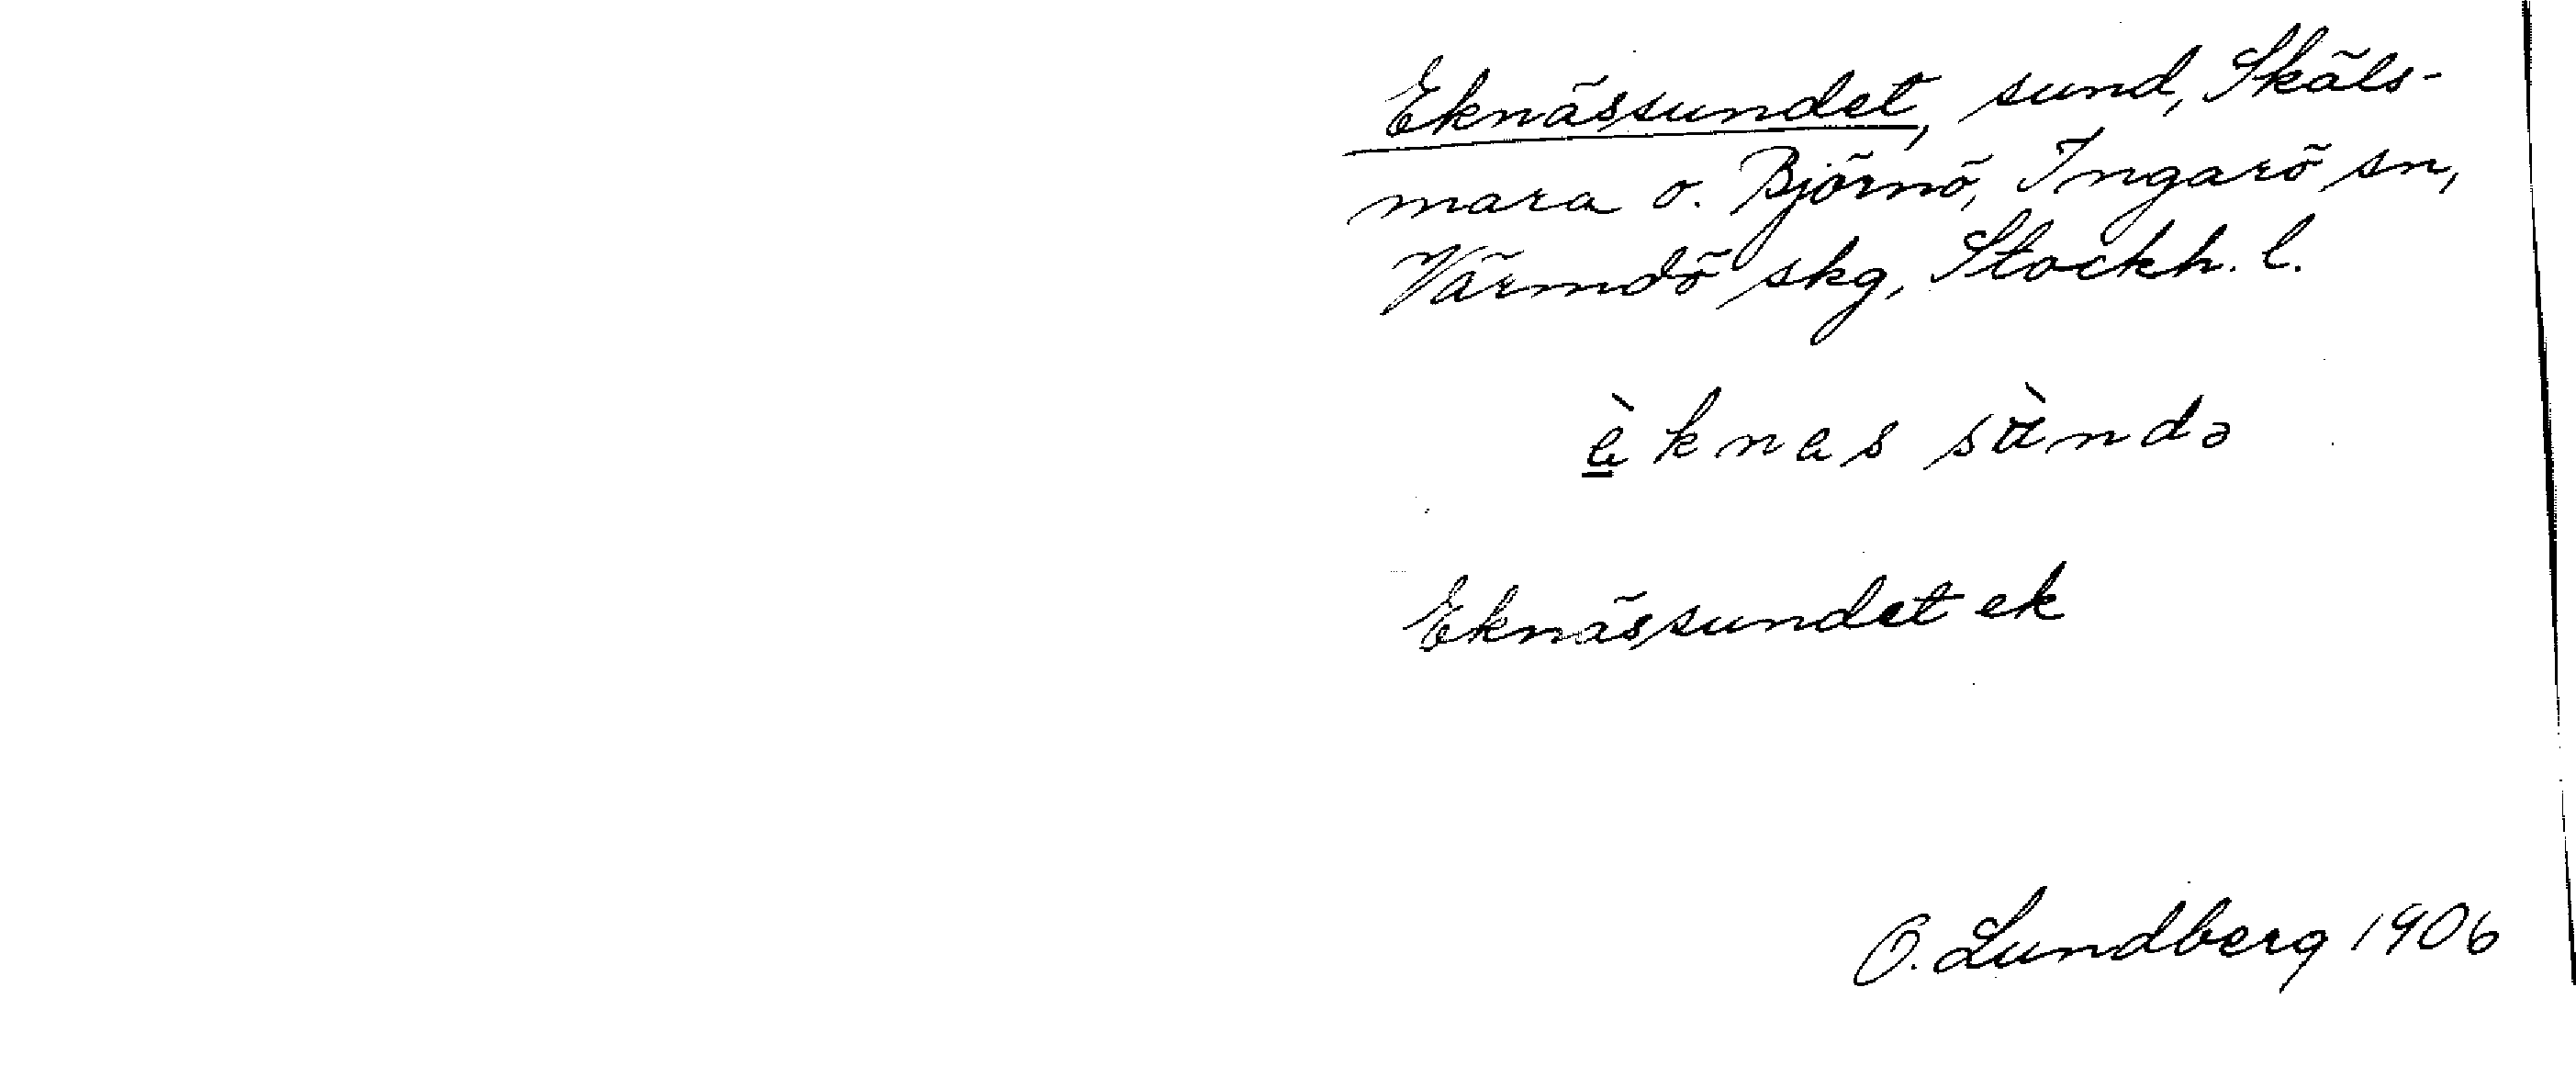 Eknässundet, sund, Skäls-
mara o. Björnö, Ingarö sn,
Värmdö skg, Stockh. l.
è̲knes sùndə
Eknässundet ek
O. Lundberg 1906